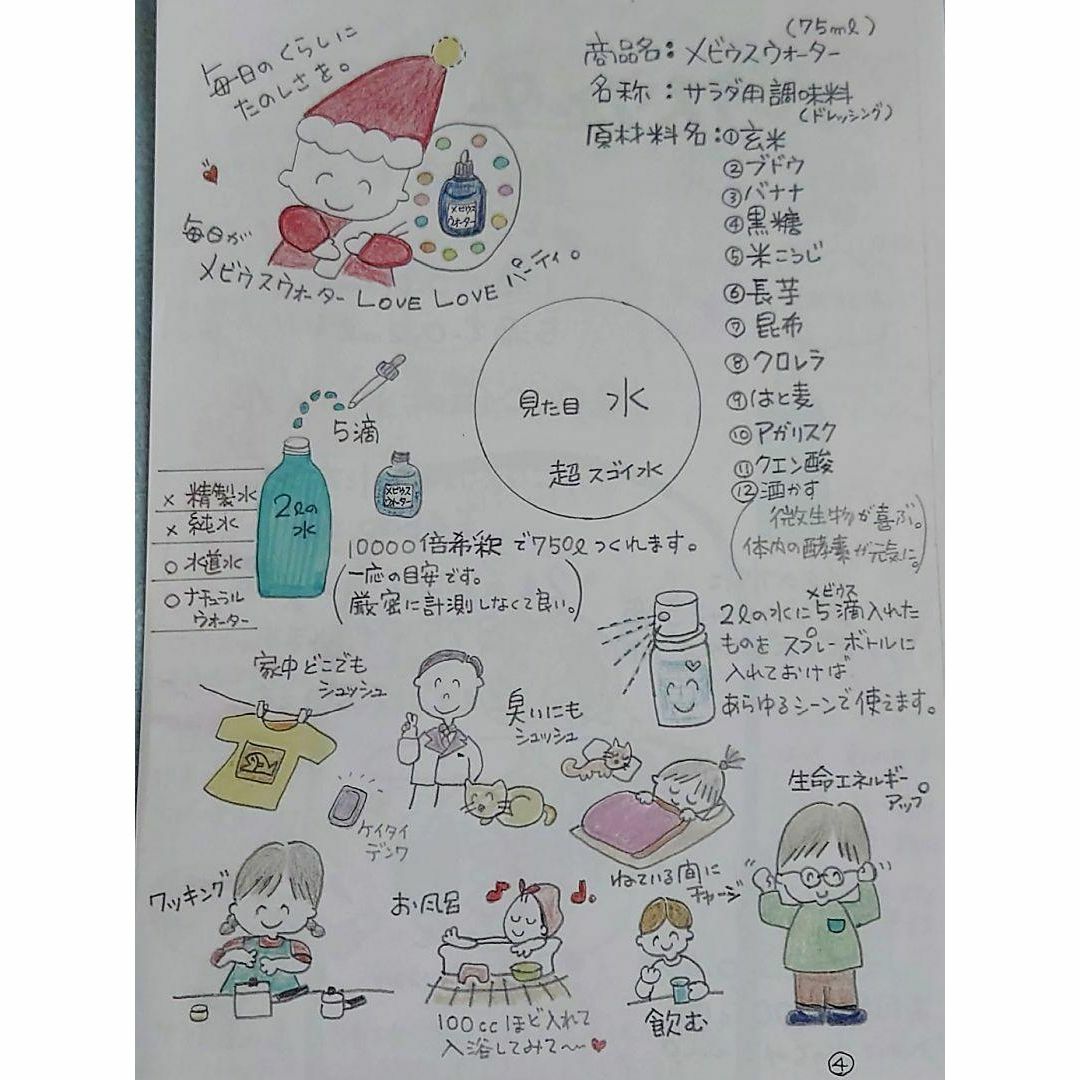 毎日のくらしに
たのしさを。
毎日が
メビウスウォーター LOVE LOVE パーティ。
メビウス
ウォーター
(75ml)
商品名：メビウスウォーター
名称：サラダ用調味料
(ドレッシング)
原材料名：①玄米
②ブドウ
③バナナ
④黒糖
⑤米こうじ
⑥長芋
⑦昆布
⑧クロレラ
⑨はと麦
⑩アガリスク
⑪クエン酸
⑫酒かす
(微生物が喜ぶ。
体内の酵素が元気に。)
見た目 水
超スゴイ水
5滴
メビウス
ウォーター
2lの
水
×精製水
×純水
○水道水
○ナチュラル
ウォーター
10000倍希釈で750lつくれます。
(一応の目安です。
厳密に計測しなくて良い。)
メビウス
2lの水に5滴入れた
ものをスプレーボトルに
入れておけば
あらゆるシーンで使えます。
家中どこでも
シュッシュ
臭いにも
シュッシュ
ケイタイ
デンワ
ねている間に
チャージ
生命エネルギー
アップ。
クッキング
お風呂
100ccほど入れて
入浴してみて〜♥
飲む
④